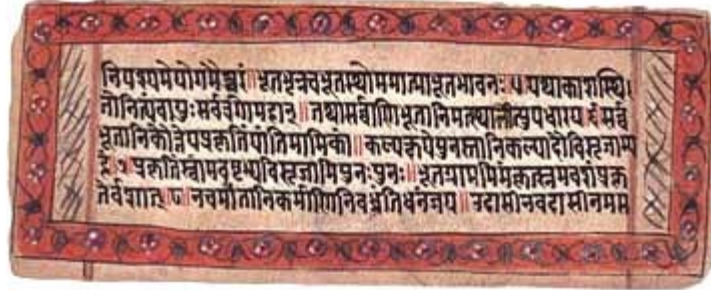 निपश्यमेयोगमैश्वरं॥भूतभृन्नचभूतस्थोममात्माभूतभावनः ५ यथाकाशस्थि
तोनित्यंवायुः सर्वत्रगोमहान्॥तथासर्वाणिभूतानिमत्स्थानीत्युपधारय ६ सर्व
भूतानिकौंतेयप्रकृतिंयांतिमामिकां॥कल्पक्षयेपुनस्तानिकल्पादौविसृजाम्य
हं ७ प्रकृतिंस्वामवष्टभ्यविसृजामिपुनःपुनः॥भूतग्राममिमंकृत्स्नमवशंप्रकृ
तेर्वशात् ८ नचमांतानिकर्माणिनिबध्नंतिधनंजय॥उदासीनवदासीनमस